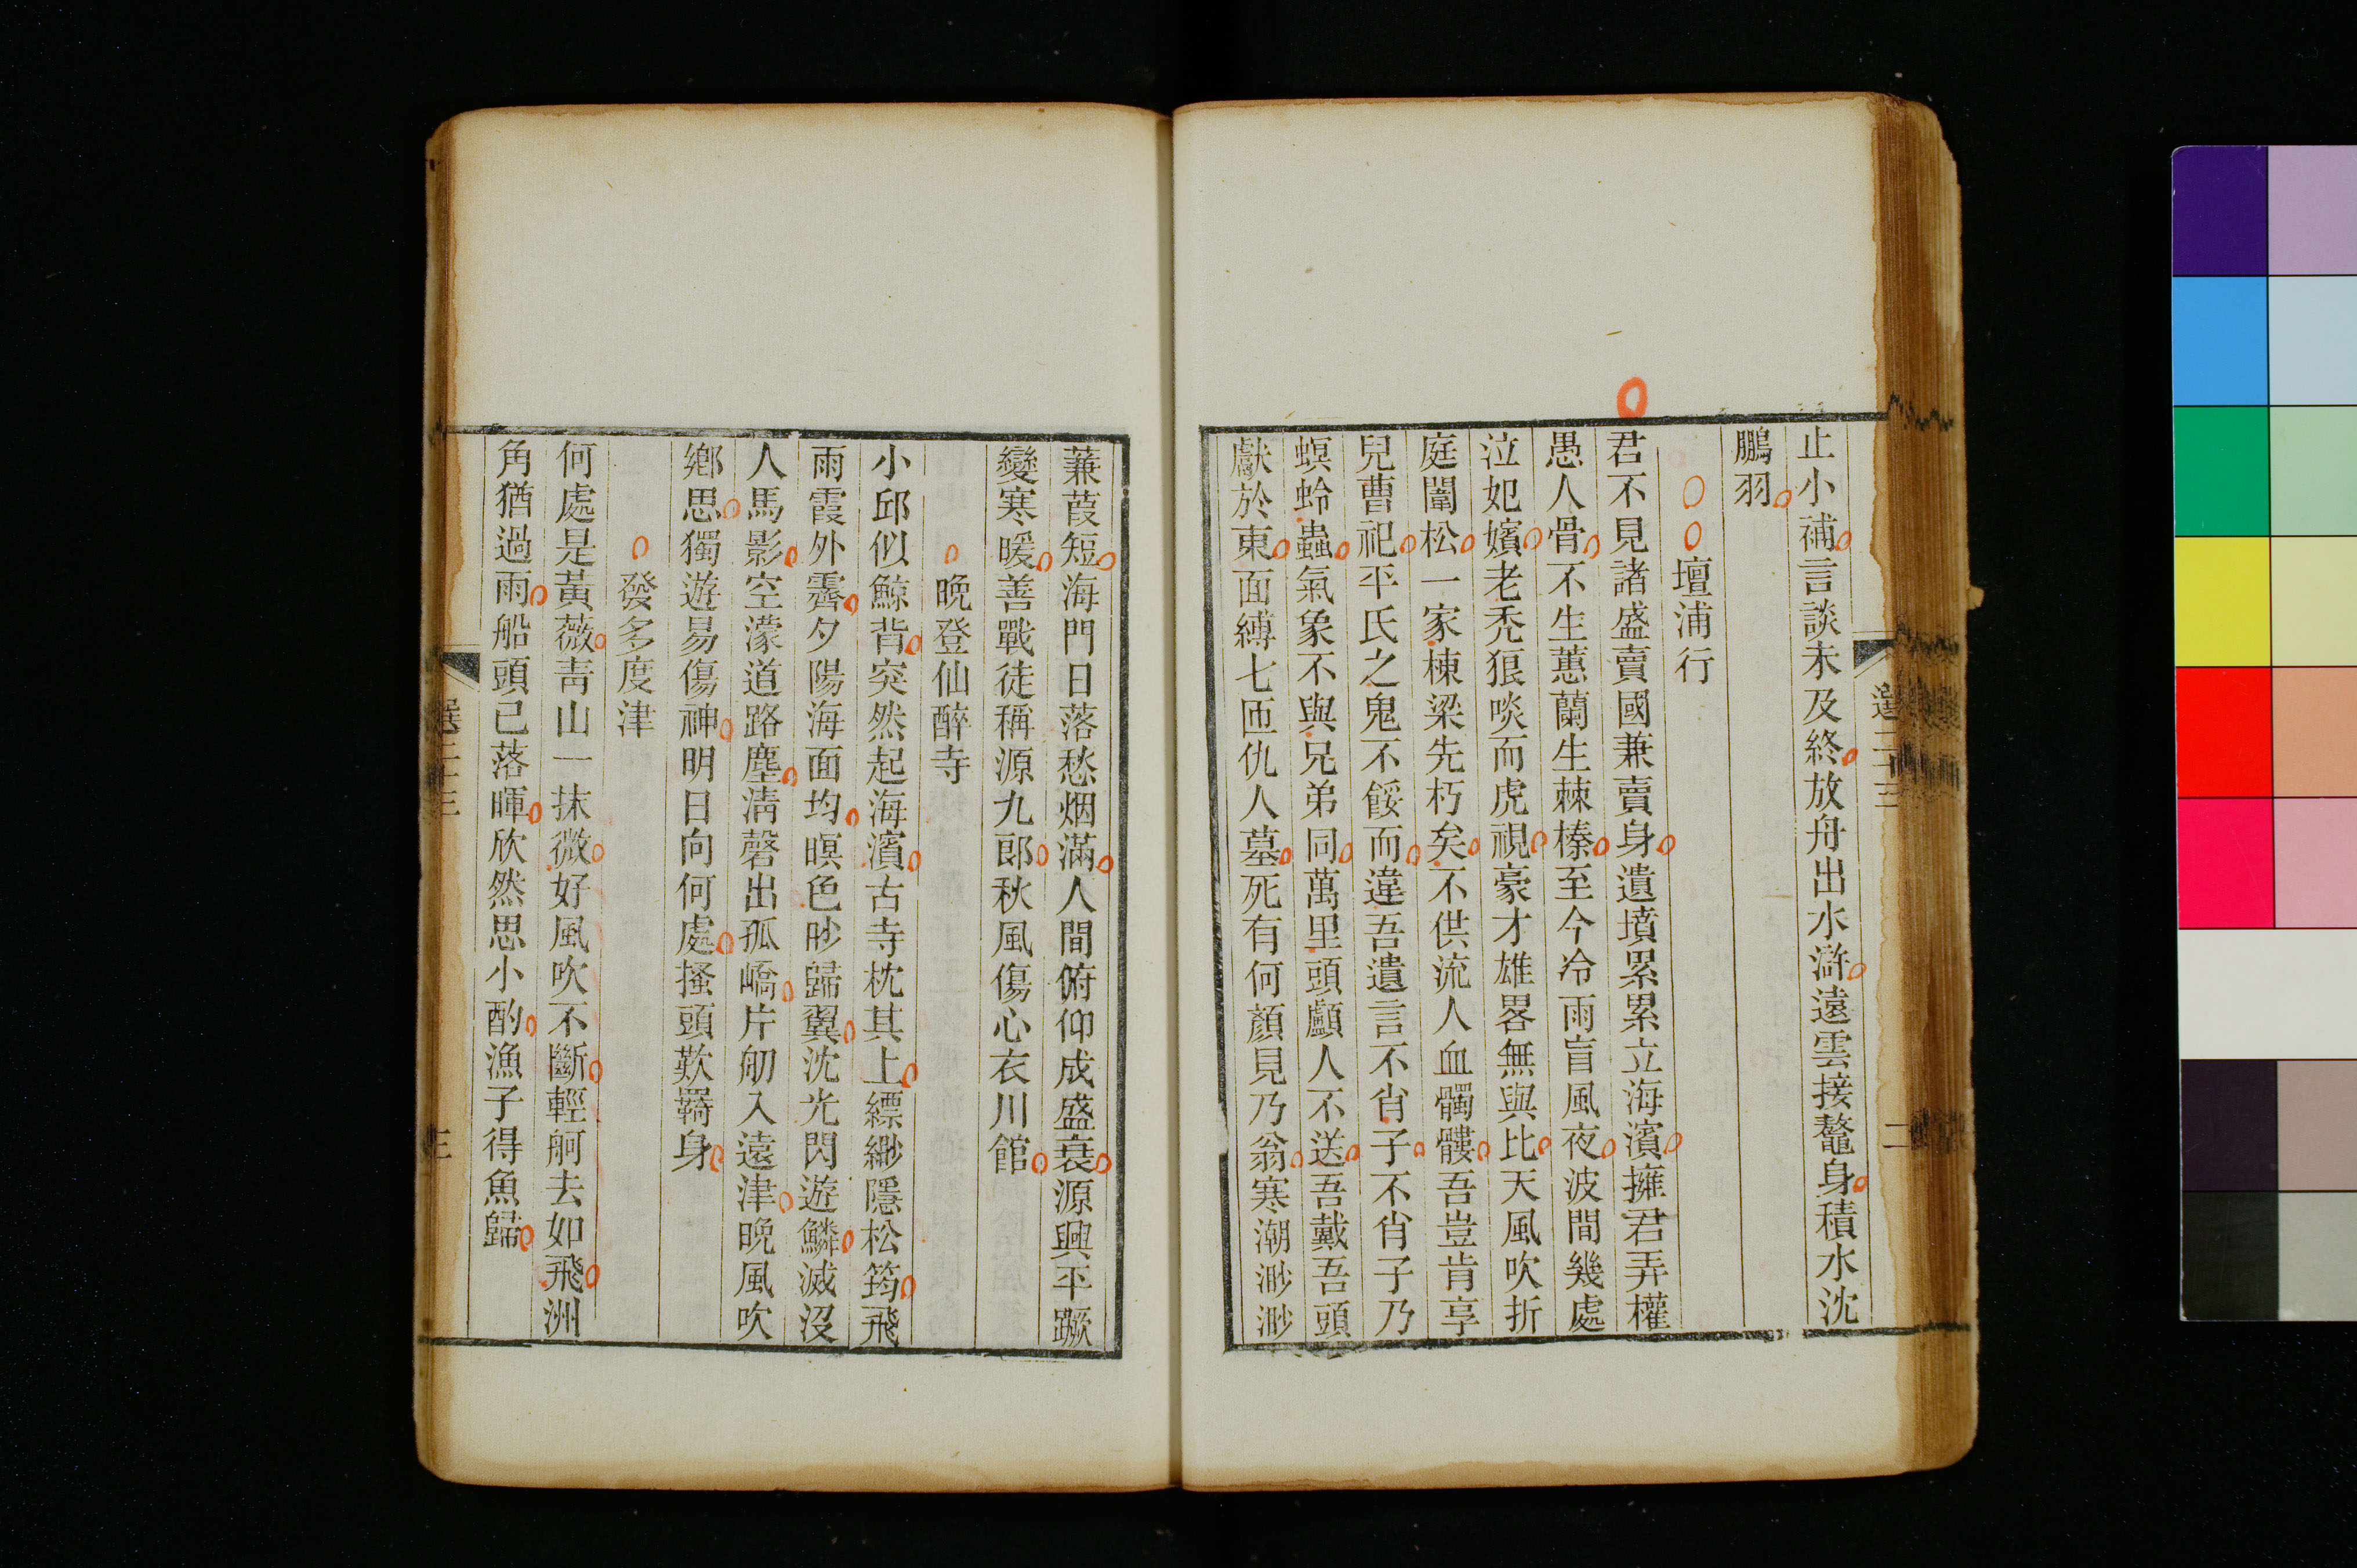 止小補言談未及終放舟出水滸遠雲接鼇身積水沈
鵬羽
壇浦行
君不見諸盛賣國兼賣身遺墳累累立海濱擁君弄權
愚人骨不生蕙蘭生棘榛至今冷雨盲風夜波間幾處
泣妃嬪老禿狼啖而虎視豪才雄畧無與比天風吹折
庭闈松一家棟梁先朽矣不供流人血髑髏吾豈肯享
兒曹祀平氏之鬼不餒而違吾遺言不肖子不肖子乃
螟蛉蟲氣象不與兄弟同萬里頭顱人不送吾戴吾頭
獻於東面縛七匝仇人墓死有何顏見乃翁寒潮渺渺
選二十三
二
蒹葭短海門日落愁烟滿人間俯仰成盛衰源興平蹶
變寒暖善戰徒稱源九郎秋風傷心衣川館
晚登仙醉寺
小邱似鯨背突然起海濱古寺枕其上縹緲隱松筠飛
雨霞外霽夕陽海面均暝色眇歸翼沈光閃遊鱗滅沒
人馬影空濛道路塵清磬出孤嶠片舠入遠津晚風吹
鄉思獨遊易傷神明日向何處搔頭歎羇身
發多度津
何處是黃薇靑山一抹微好風吹不斷輕舸去如飛洲
角猶過雨船頭已落暉欣然思小酌漁子得魚歸
選二十三
三